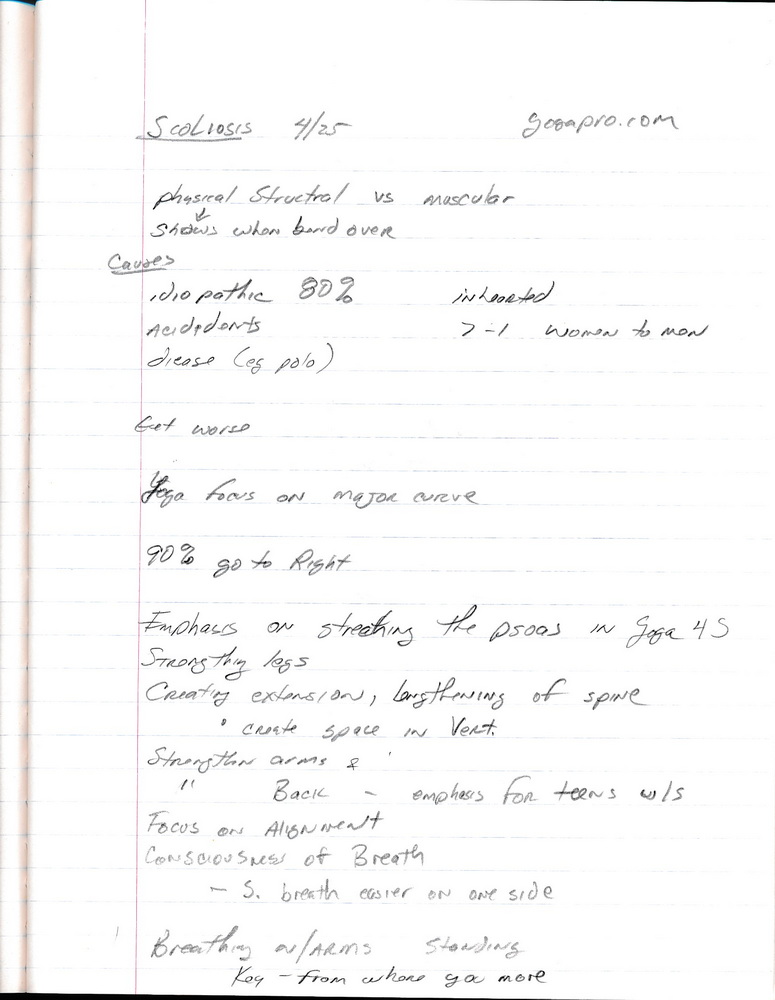 Scoliosis 4/25 yogapro.com
physical Structral vs muscular
Shows when bend over
Causes
idiopathic 80% inhearted
Acidedents 7-1 women to men
diease (eg polo)
Get worse
Yoga focus on major curve
90% go to Right
Emphasis on streathing the psoas in Yoga 4 S
Strengthing legs
Creating extension, lengthening of spine
• create space in Vert.
Strengthn arms &
" Back - emphasis for teens w/s
Focus on Alignment
Consciousness of Breath
- S. breath easier on one side
Breathing w/ARMS Standing
Key - from where you move